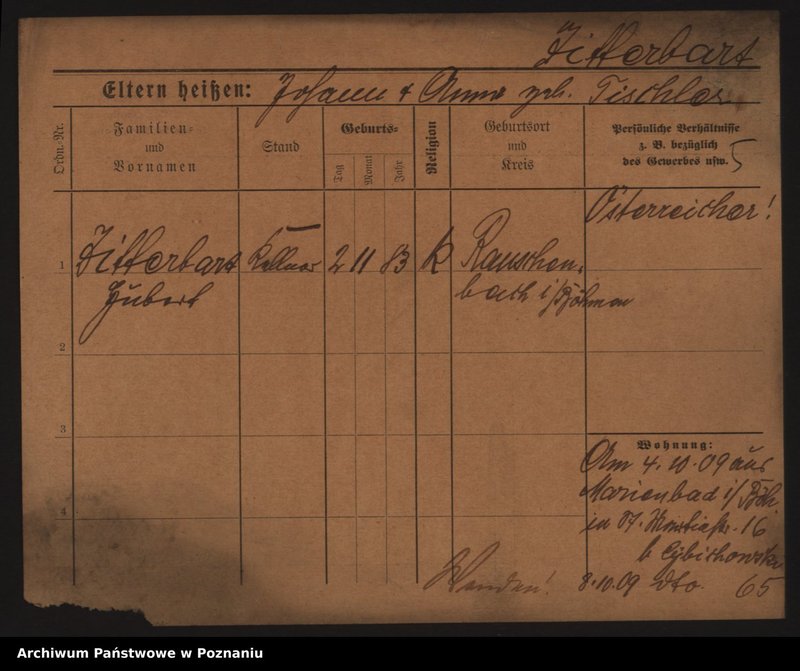 Zitterbart
Eltern heißen: Johann & Anna geb. Tischler
Ordn.-Nr.
Familien-
und
Vornamen
Stand
Geburts-
Tag
Monat
Jahr
Religion
Geburtsort
und
Kreis
Persönliche Verhältnisse
z. B. bezüglich
des Gewerbes usw. 5
Österreicher!
1 Zitterbart Kellner 2 11 83 k Rauschen-
Hubert bach i/Böhmen
2
3
4
Wohnung:
Am 4.10.09 aus
Marienbad i/Böh.
in 16
b
8.10.09 dto. 65
Wenden!
Archiwum Państwowe w Poznaniu